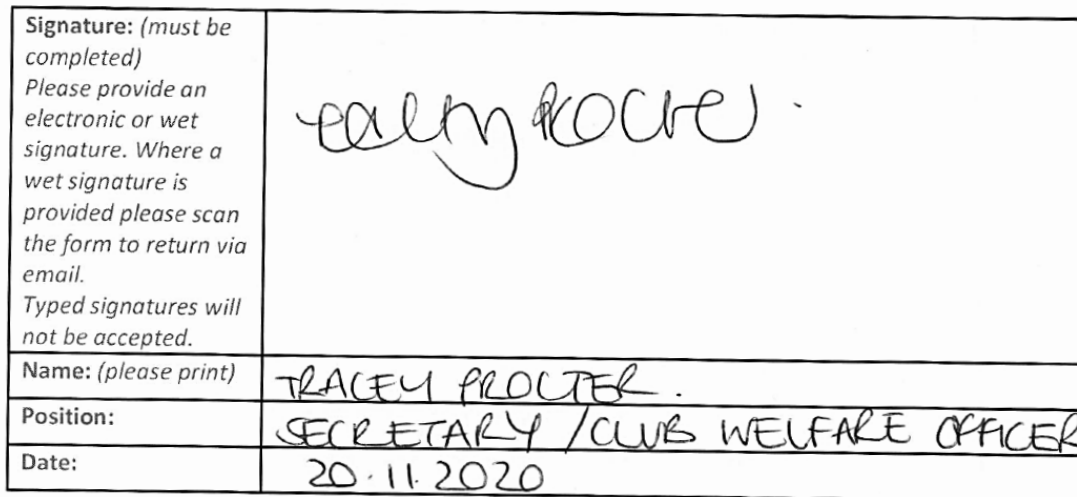 Signature: (must be
completed)
Please provide an
electronic or wet
signature. Where a
wet signature is
provided please scan
the form to return via
email.
Typed signatures will
not be accepted.
Tracey Procter.
Name: (please print) TRACEY PROCTER.
Position: SECRETARY / CLUB WELFARE OFFICER
Date: 20.11.2020